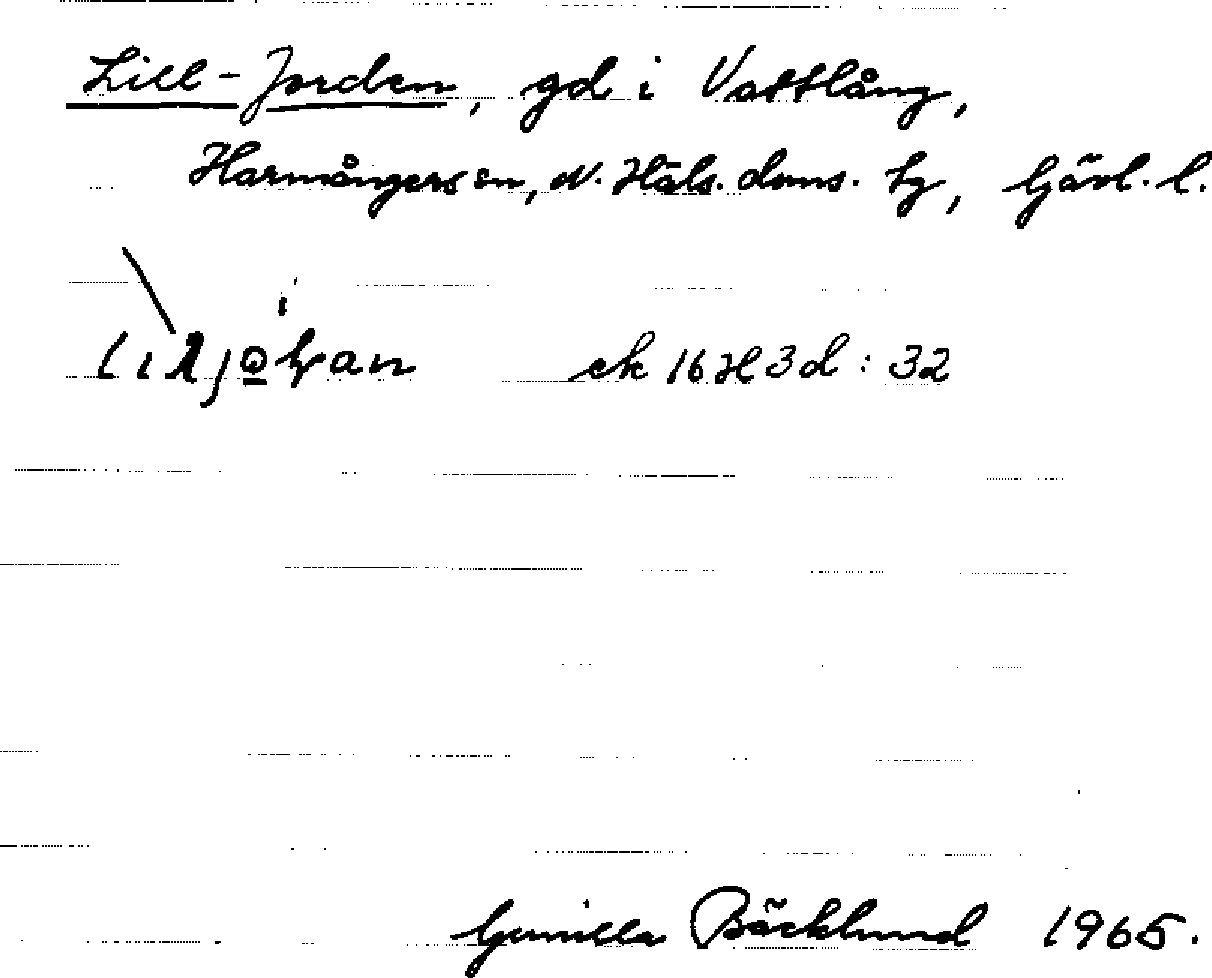 Lill-Jorden, gd i Vattlång,
Harmångers sn, N. Häls. doms. hg, Gävl. l.
ek 16 H 3d : 32
Gunilla Bäcklund 1965.